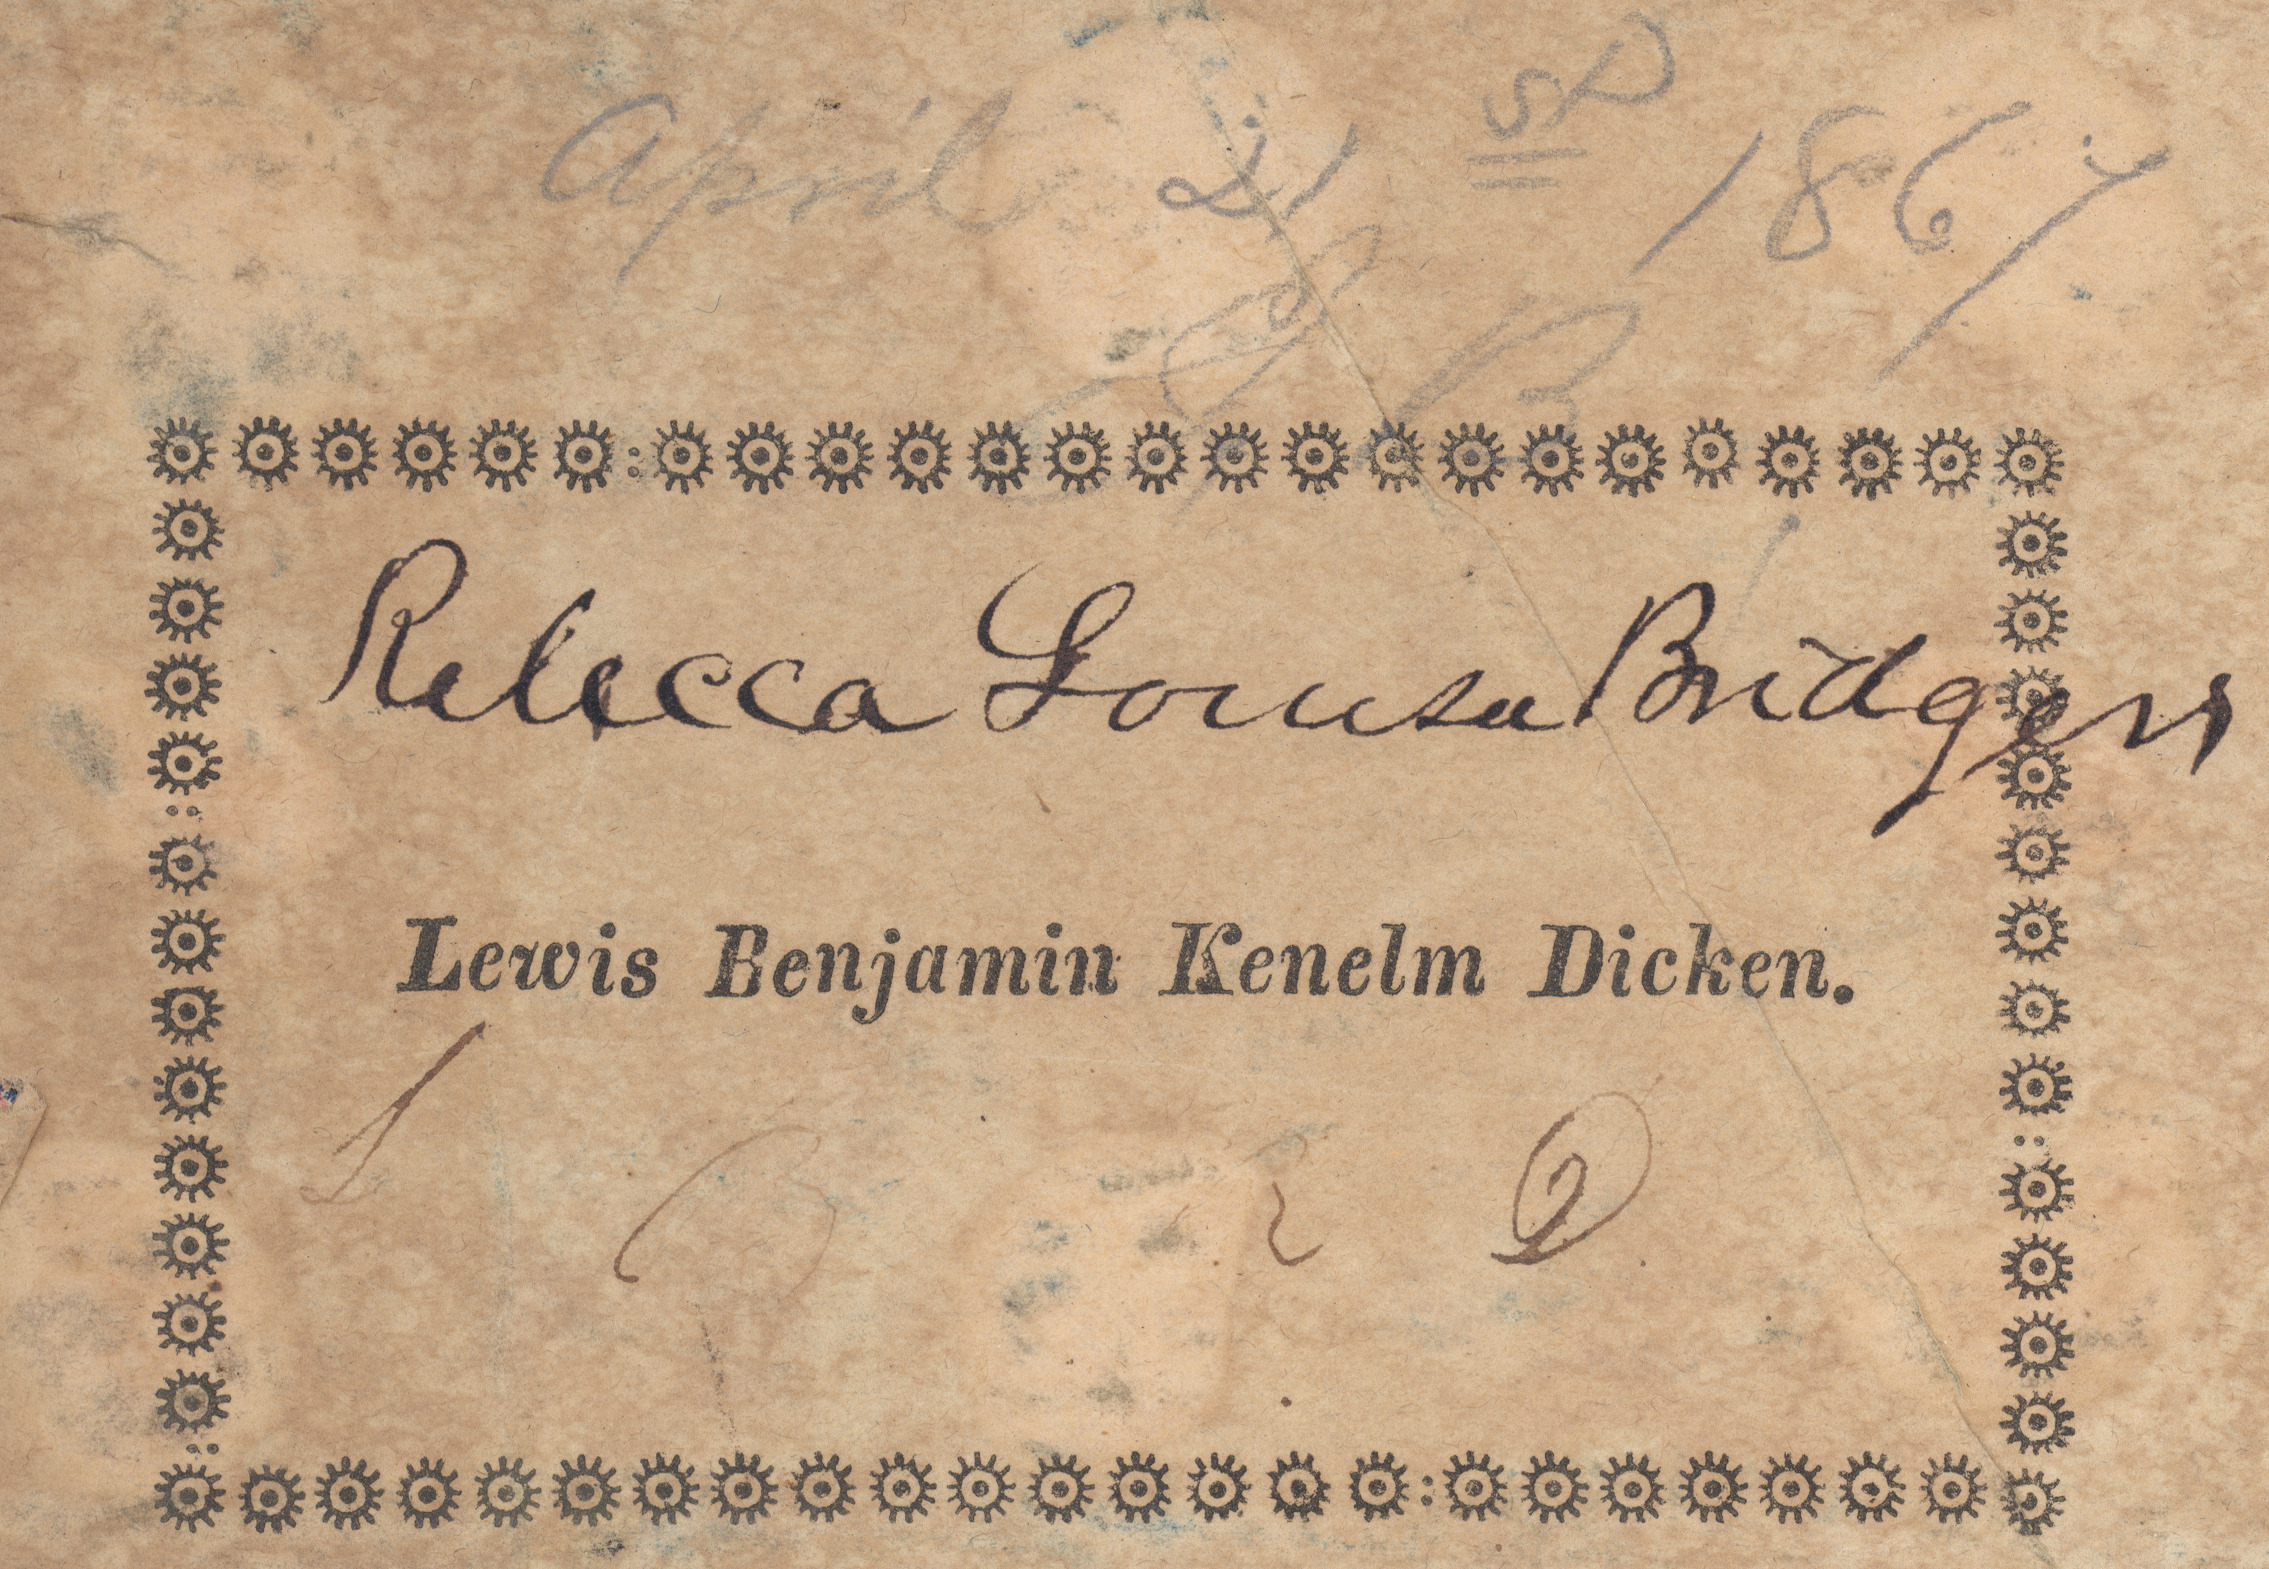 April 21 st 1867
B
Rebecca Louisa Bridgers
Lewis Benjamin Kenelm Dicken.
L B K D